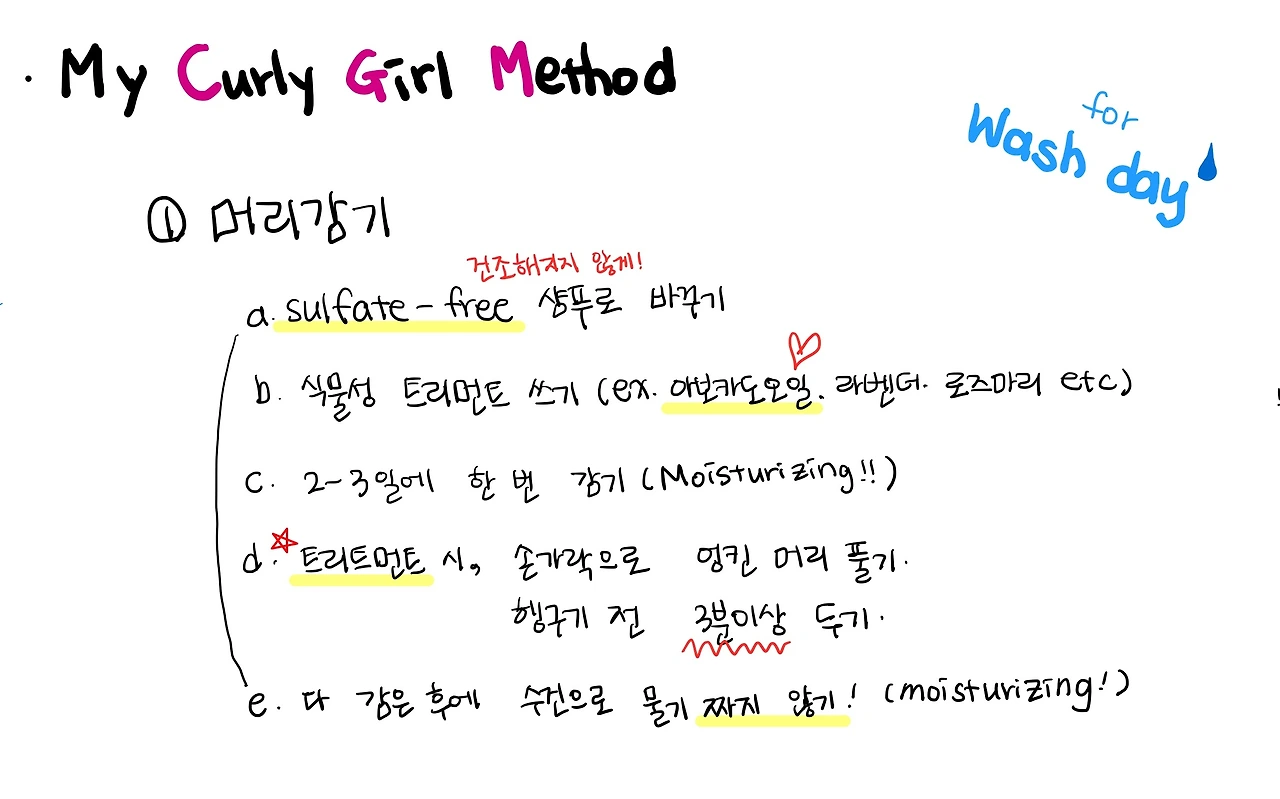 · My Curly Girl Method
for
Wash day
① 머리감기
건조해지지 않게!
a. sulfate-free 샴푸로 바꾸기
b. 식물성 트리먼트 쓰기 (ex. 아보카도오일. 라벤더. 로즈마리 etc)
c. 2~3일에 한 번 감기 (Moisturizing!!)
d. 트리트먼트 시, 손가락으로 엉킨 머리 풀기.
헹구기 전 3분이상 두기.
e. 다 감은 후에 수건으로 물기 짜지 않기! (moisturizing!)